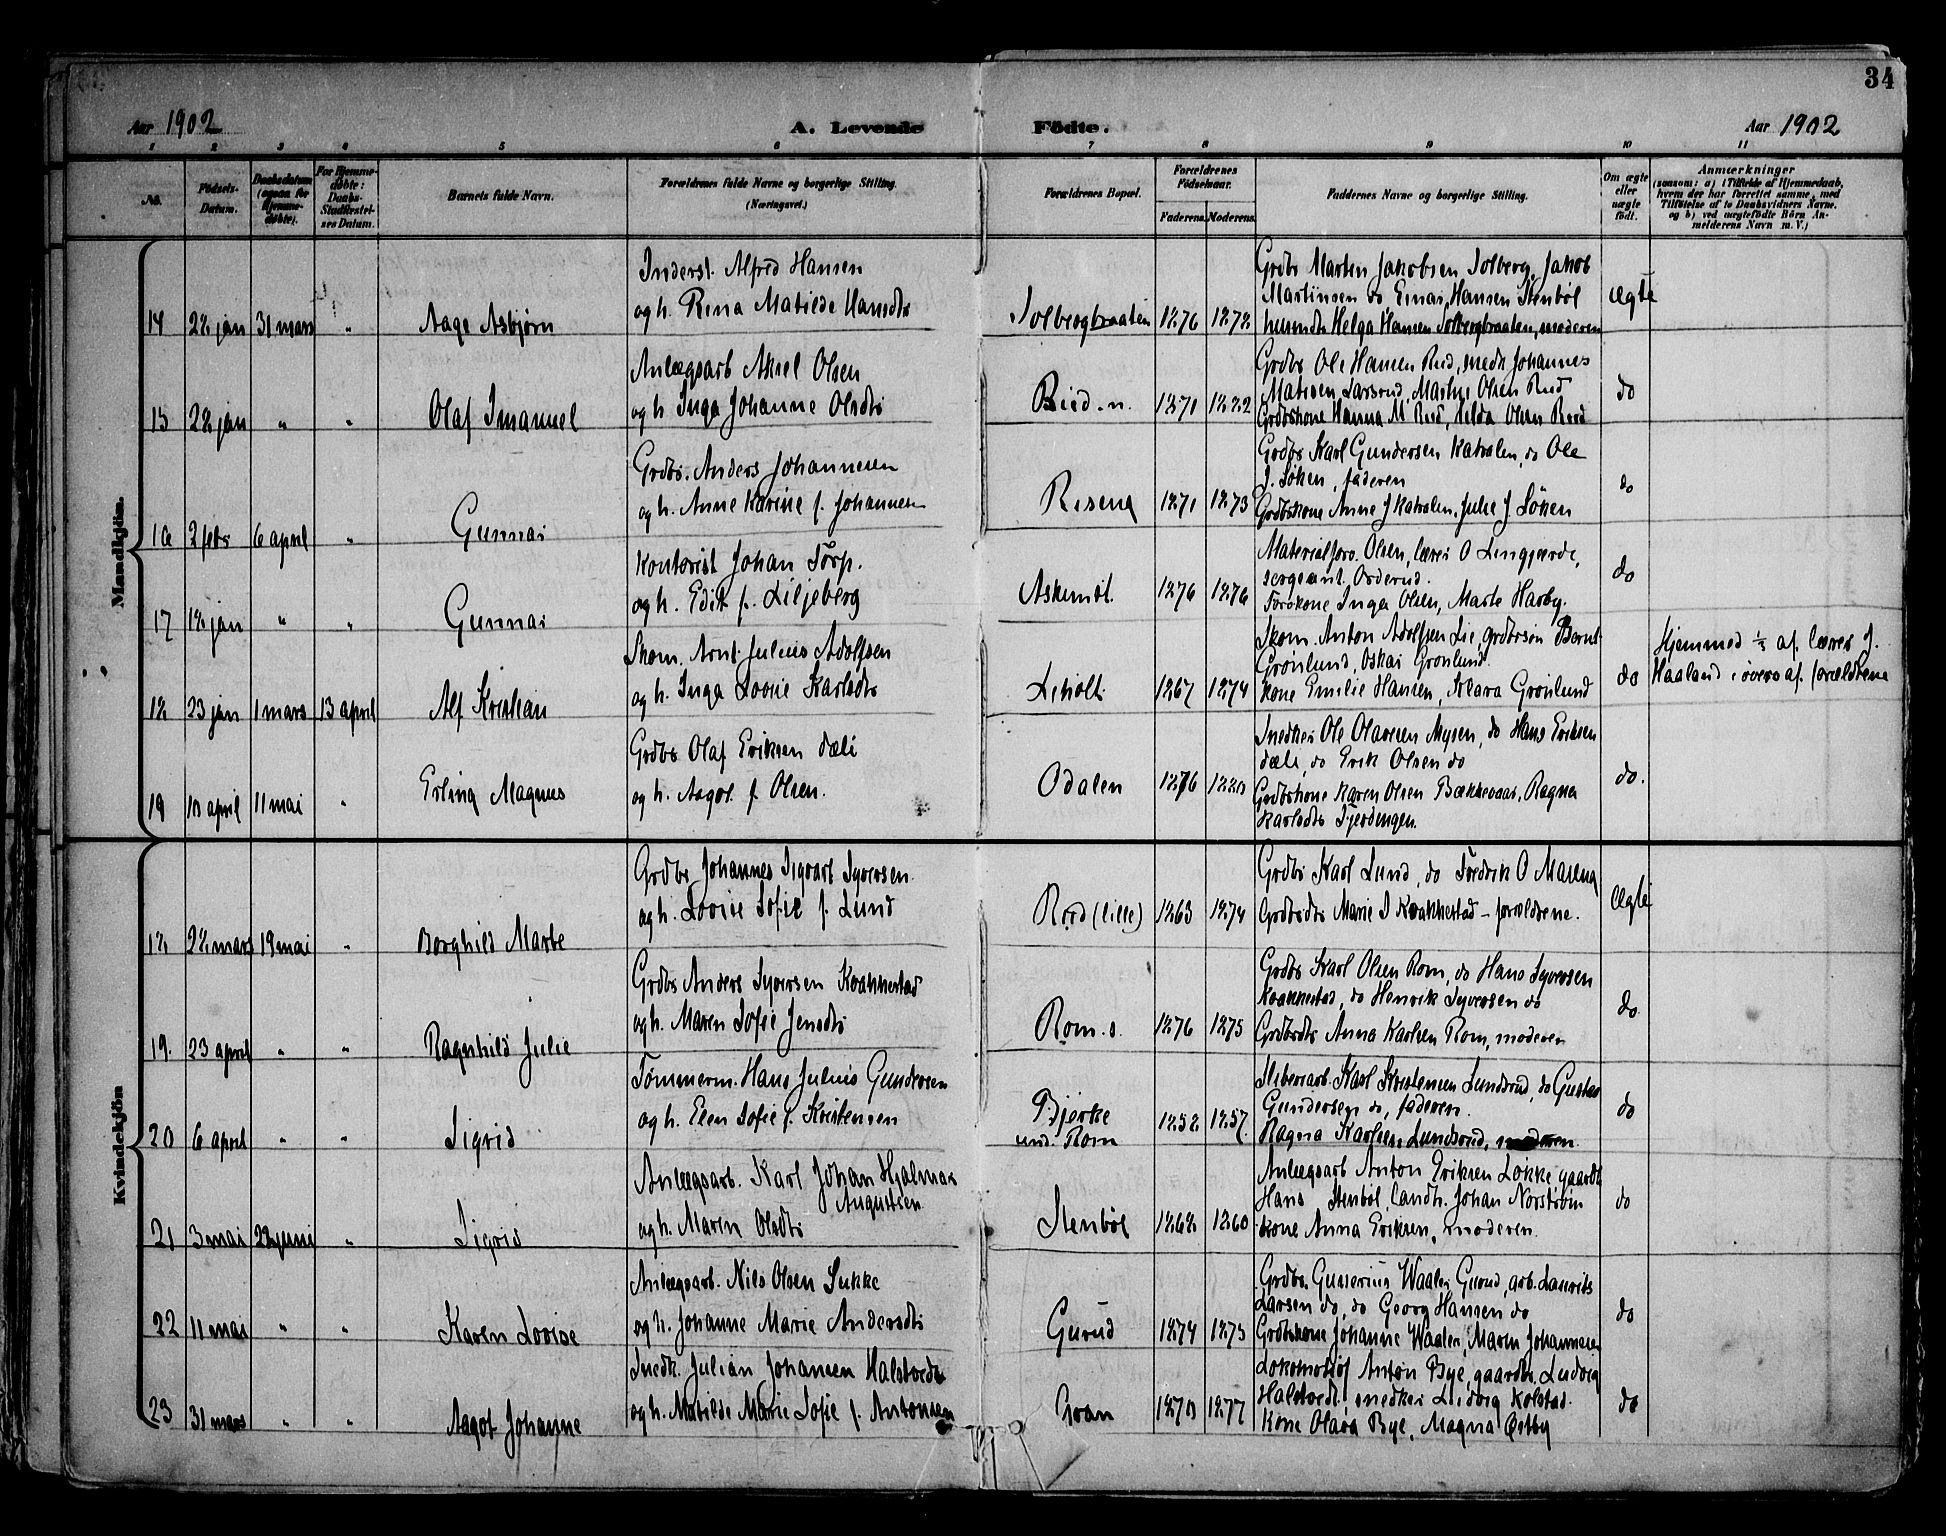 34
Aar 1902
A. Levende Födte.
Aar 1902
1 2 3 4 5 6 7 8 9 10 11
No.
Födsels-
Datum.
Daabsdatum
(ogsaa for
Hjemme-
døbte).
For Hjemme-
døbte:
Daabs-
Stadfæstel-
ses Datum.
Barnets fulde Navn.
Forældrenes fulde Navne og borgerlige Stilling.
(Næringsvei.)
Forældrenes Bopæl.
Forældrenes
Födselsaar.
Faderens. Moderens.
Faddernes Navne og borgerlige Stilling.
Om ægte
eller
uægte
født.
Anmærkninger
(saasom: a) i Tilfælde af Hjemmedaab,
hvem der har forrettet samme, med
Tilføielse af to Daabsvidners Navne,
og b) ved uægtefødte Börn An-
melderens Navn m. V.)
Mandkjön.
14 28 jan 31 mars " Aage Asbjørn
Inderst. Alfred Hansen
og h. Rina Matilde Hansdtr
Solbergbraaten 1876 1878
Grdbr Marten Jakobsen Solberg, Jakob
Martinsen do Einar Hansen Stenbøl
husmdtr Helga Hansen Solbergbraaten, moderen
Ægte
15 28 jan " " Olaf Imanuel
Anlægsarb Aksel Olsen
og h. Inga Johanne Olsdtr
Rud. n. 1871 1882
Grdbr Ole Hansen Rud, snedk Johannes
Matisen Larsrud, Martin Olsen Rud
Grdbrkone Hanna M Rud, Hilda Olsen Rud
do
16 2 febr 6 april " Gunnar
Grdbr. Anders Johannesen
og h. Anne Karine f. Johannesen
Risena 1871 1873
Grdbr Karl Gundersen Katralen, do Ole
J. Löken, faderen
Grdbrkone Anne J Katralen, Julie J Löken
do
17 18 jan " " Gunnar
Kontorist Johan Torp.
og h. Edit f. Liljeberg
Askimst. 1876 1876
Materialforv. Olsen, lærer O Lengjærde,
sergeant Orderud.
Forvkone Inga Olsen, Marte Harby.
do
18 23 jan 1 mars 13 april Alf Kristian
Skom. Arnt Julius Adolfsen
og h. Inga Lovise Karlsdtr
Liholt 1867 1874
Skom. Anton Adolfsen Lie, grdbrsön Bernt
Grönlund, Oskar Grönlund.
Kone Emilie Hansen, Klara Grönlund
do
Hjemmed 1/3 af lærer J.
Haaland i overv af forældrene
19 10 april 11 mai " Erling Magnus
Grdbr Olaf Eriksen Dæli
og h. Aagot f. Olsen.
Odalen 1876 1880
Snedker Ole Olavesen Mysen, do Hans Eriksen
Dæli, do Erik Olsen do
Grdbrkone Karen Olsen Bækkevar, Ragna
Karlsdtr Fjerdingen.
do.
Kvindekjön
18 28 mars 19 mai " Borghild Marte
Grdbr Johannes Sigvart Syversen.
og h. Lovise Sofie f. Lund
Rud (lille) 1863 1874
Grdbr Karl Lund, do Fredrik O Masena
Grdbrdtr Marie S Kvakkestad – forældrene.
Ægte
19. 23 april " " Ragnhild Julie
Grdbr Anders Syversen Kvakkestad
og h. Maren Sofie Jensdtr
Rom. s. 1876 1875
Grdbr Karl Olsen Rom, do Hans Syversen
Kvakkestad, do Henrik Syversen do
Grdbrdtr Anna Karlsen Rom, moderen
do
20 6 april " " Sigrid
Tömmerm. Hans Julius Gundersen
og h. Elen Sofie f. Kristensen
Bjerke
und. Rom 1852 1857
Sliberiarb. Karl Kristensen Lundsrud, do Gustav
Gundersen do, faderen.
Ragna Karlsen Lundsrud, moderen.
do
21 3 mai 22 juni " Sigrid
Anlægsarb. Karl Johan Hjalmar
Augustsen
og h. Maren Olsdtr
Stenbøl 1868 1860
Anlægsarb Anton Eriksen Lökke, gaardbr
Hans Stenbøl, landh. Johan Norström
Kone Anna Eriksen, moderen.
do
22 11 mai " " Karen Lovise
Anlægsarb. Nils Olsen Sukke
og h. Johanne Marie Andersdtr
Gurud 1874 1875
Grdbr. Gunerius Waaler Gurud, arb. Laurits
Larsen do, do Georg Hansen do
Grdbrkone Johanne Waaler, Maren Johannesen
do
23 31 mars " " Aagot Johanne
Snedk. Julian Johansen Halstvedt
og h. Matilde Marie Sofie f. Antonsen
Gran 1870 1877
Lokomotivf Anton Bye, gaardbr. Ludvig
Halstvedt, snedker Ludvig Kolstad.
Kone Olava Bye, Magna Østby
do